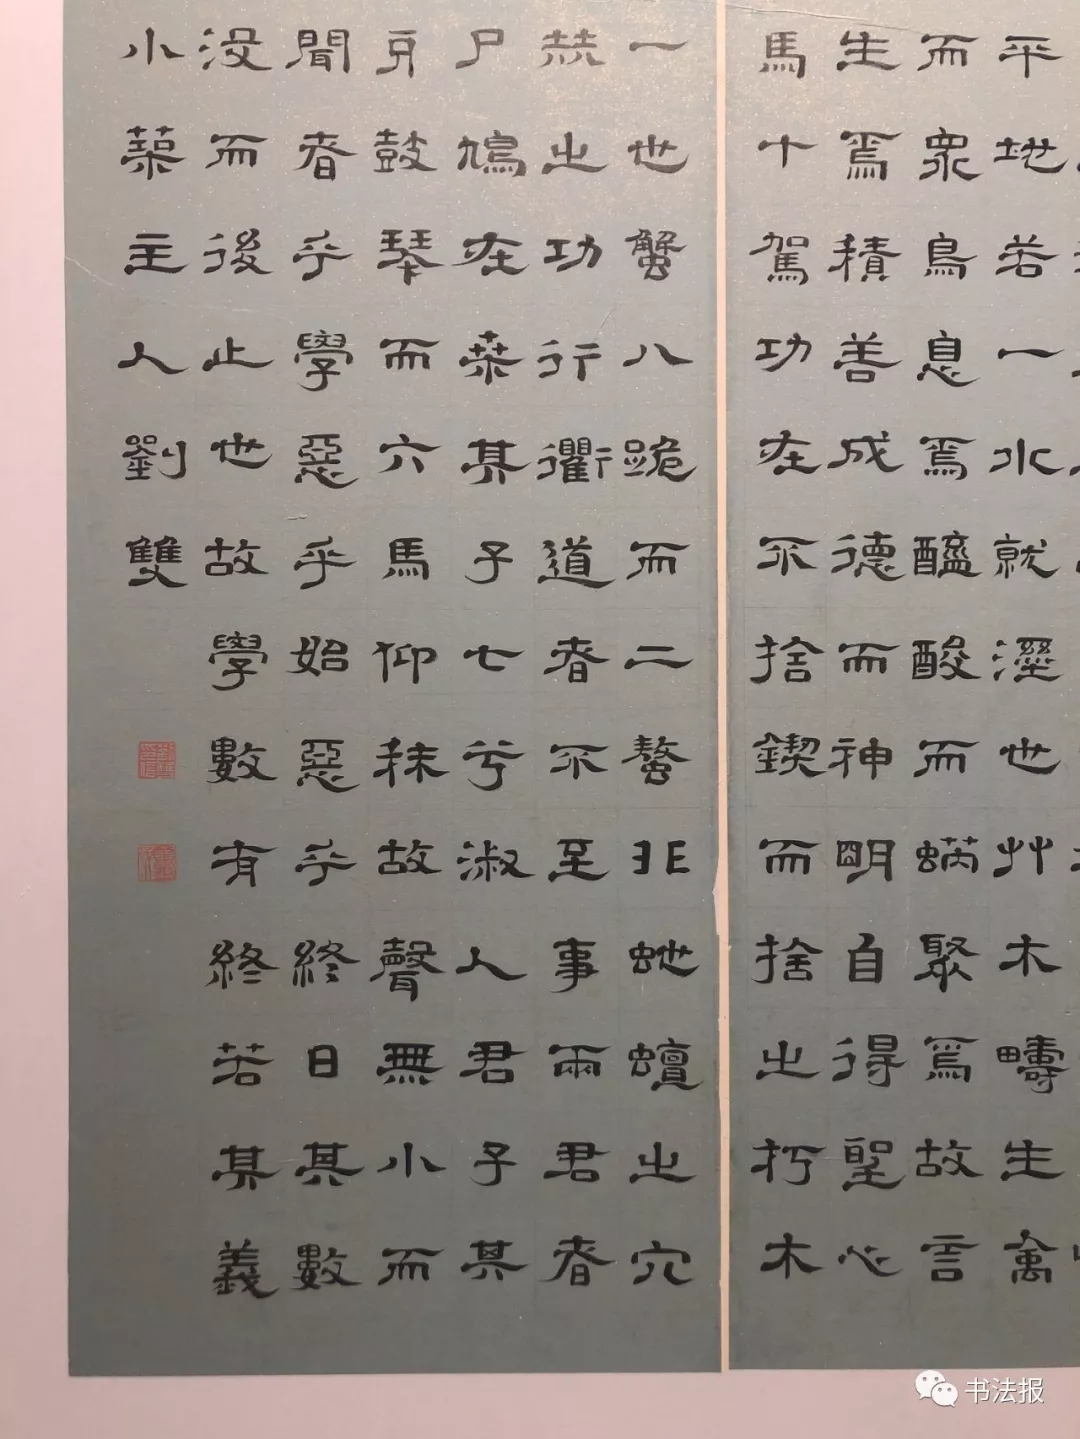 平地若一水就溼也艸木疇生禽
而衆鳥息焉醯酸而蜹聚焉故言
生焉積善成德而神明自得聖心
馬十駕功在不捨鍥而捨之朽木
一也蟹八跪而二螯非蛇蟺之穴
赫之功行衢道者不至事兩君者
尸鳩在桑其子七兮淑人君子其
牙鼓琴而六馬仰秣故聲無小而
聞者乎學惡乎始惡乎終曰其數
没而後止也故學數有終若其義
小主人劉雙
书法报